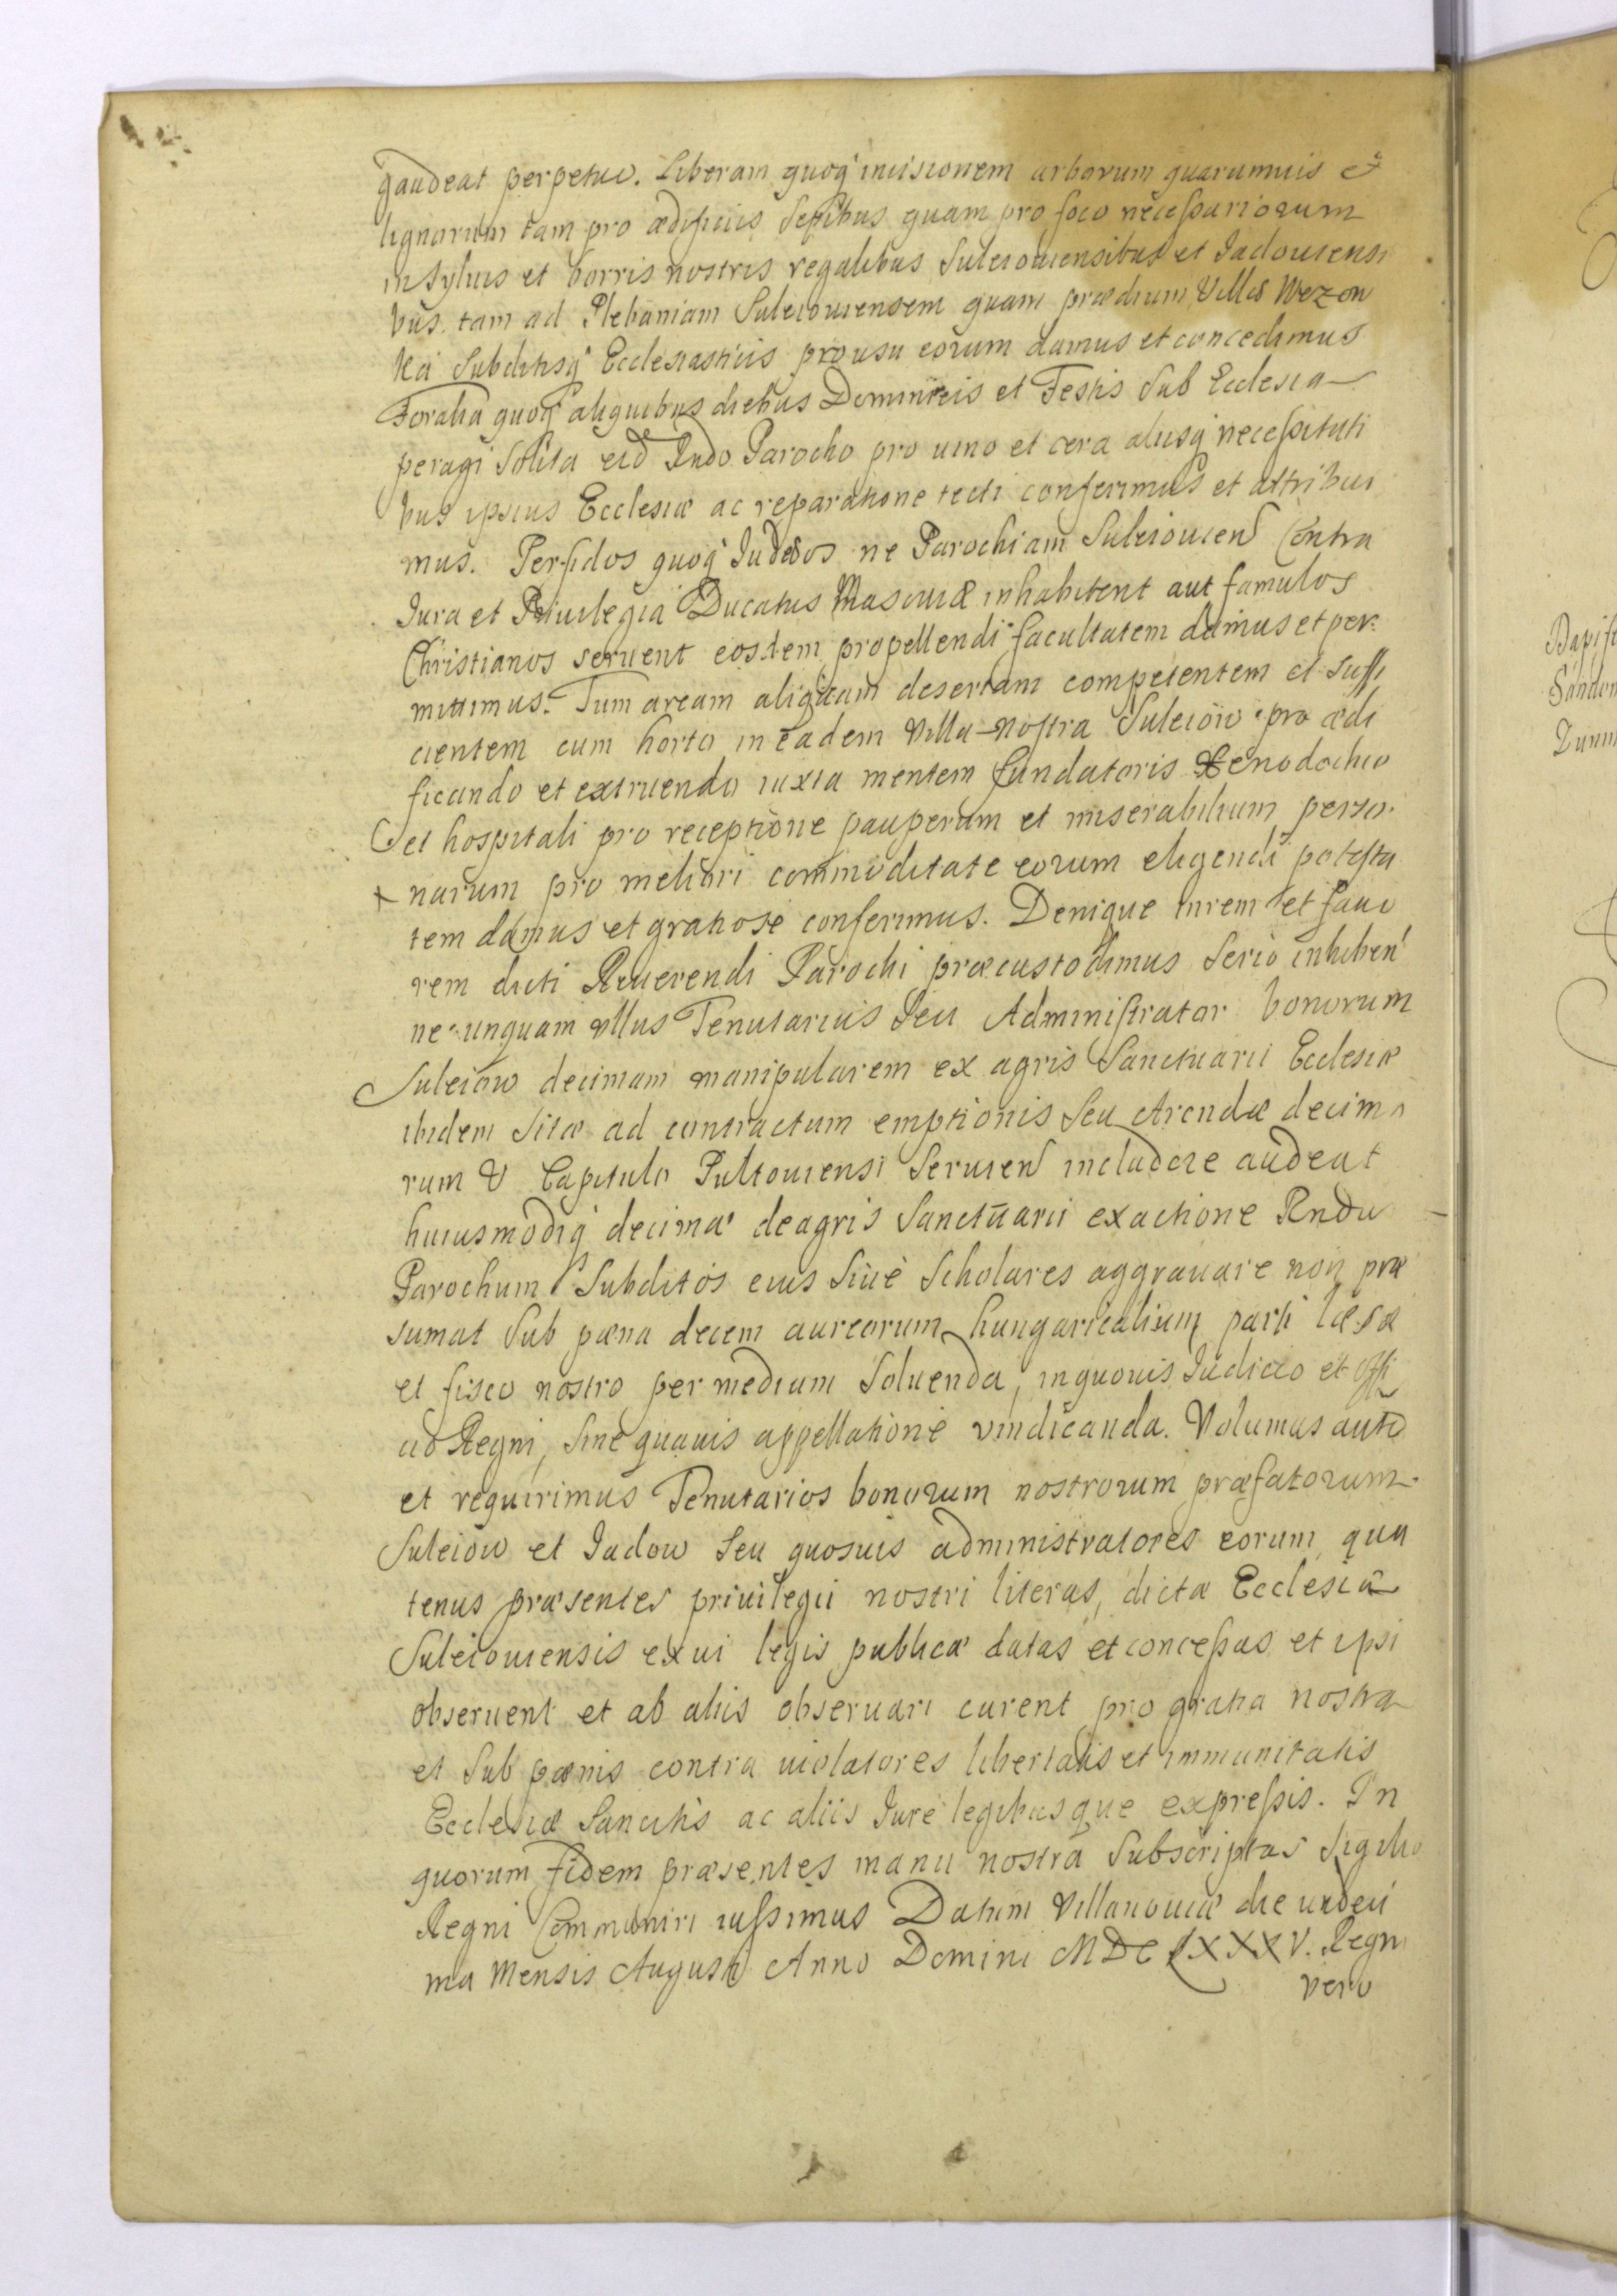 gaudeat perpetuo. Liberam quoq incisionem arborum quarumuis et
lignorum tam pro ædificiis Sepibus quam pro foco necessariorum
in syluis et borris nostris regalibus Suleiouiensibus et Jadouiensi
bus. tam ad Plebaniam Suleiouiensem quam prædium Villæ Wezon
ka Subditisq Ecclesiasticis pro usu eorum damus et concedimus
Foralia quoq aliquibus diebus Dominicis et Festis Sub Ecclesia
peragi Solita eid Rndo Parocho pro uino et cera aliisq necessitati
bus ipsius Ecclesiæ ac reparatione tecti conferimus et attribui
mus. Perfidos quoq Judæos ne Parochiam Suleiouien Contra
Jura et Priuilegia Ducatus Masouiæ inhabitent aut famulos
Christianos seruent eosdem propellendi facultatem damus et per
mittimus. Tum aream aliquam desertam competentem et Suffi
cientem cum horto in eadem Villa nostra Suleiow pro ædi
ficando et extruendo iuxta mentem fundatoris Xenodochio
et hospitali pro receptione pauperum et miserabilium perso
narum pro meliori commoditate eorum eligendi potesta
tem damus et gratiose conferimus. Denique turem et fauo
rem dicti Reuerendi Parochi præcustodimus Serio inhiben
ne unquam ullus Tenutarius Seu Administrator bonorum
Suleiow decimam manipularem ex agris Sanctuarii Ecclesiæ
ibidem Sitæ ad contractum emptionis Seu Arendæ decima
rum V Capitulo Pultouiensi Seruien includere audeat
huiusmodiq decimæ de agris Sanctuarii exactione Rndu
Parochum Subditos eius Siue Scholares aggrauare non præ
sumat Sub pæna decem aureorum hungaricalium parti læsæ
et fisco nostro per medium Soluenda, in quouis Judicio et Offi
cio Regni, Sine quauis appellatione vindicanda. Volumus aute
et requirimus Tenutarios bonorum nostrorum præfatorum
Suleiow et Jadow Seu quosuis administratores eorum, qua
tenus præsentes priuilegii nostri literas, dictæ Ecclesiæ
Suleiouiensis ex ui legis publicæ datas et concessas et ipsi
obseruent et ab aliis obseruari curent pro gratia nostra
et Sub pænis contra uiolatores libertatis et immunitatis
Ecclesiæ Sancitis ac aliis Jure legibusque expressis. In
quorum fidem præsentes manu nostra Subscriptas Sigillo
Regni Communiri iussimus Datum Villanouiæ die undeci
ma Mensis Augusti Anno Domini MDCLXXXV. Regni
vero